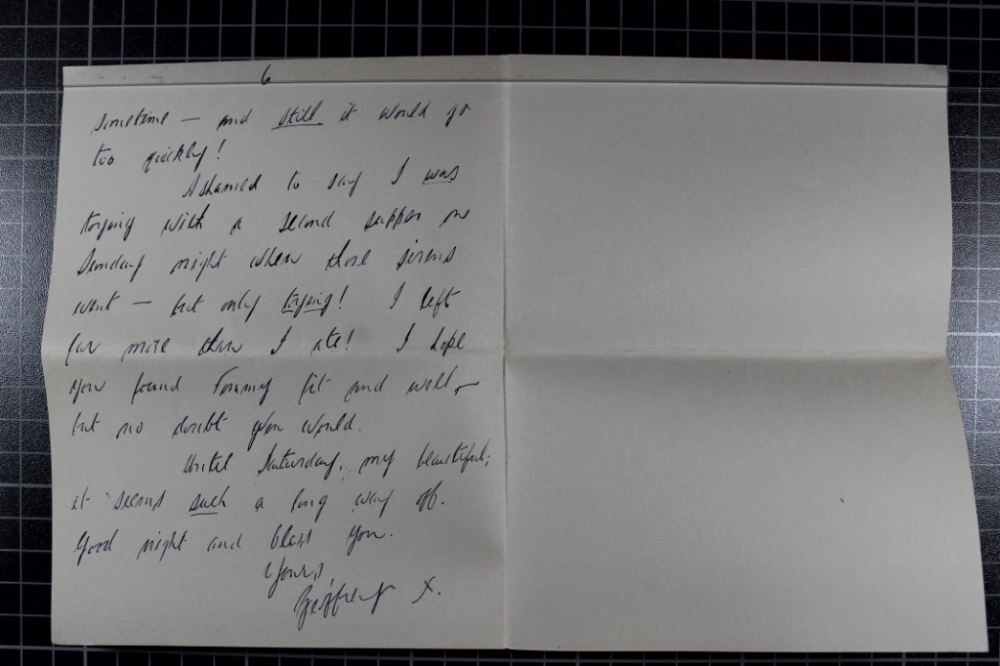 6
sometime — and still it would go
too quickly!
Ashamed to say I was
toying with a second supper on
Sunday night when those sirens
went — but only toying! I left
far more than I ate! I hope
you found Tommy fit and well –
but no doubt you would.
Until Saturday, my beautiful;
it seems such a long way off.
Good night and bless you.
Yours,
Geoffrey X.